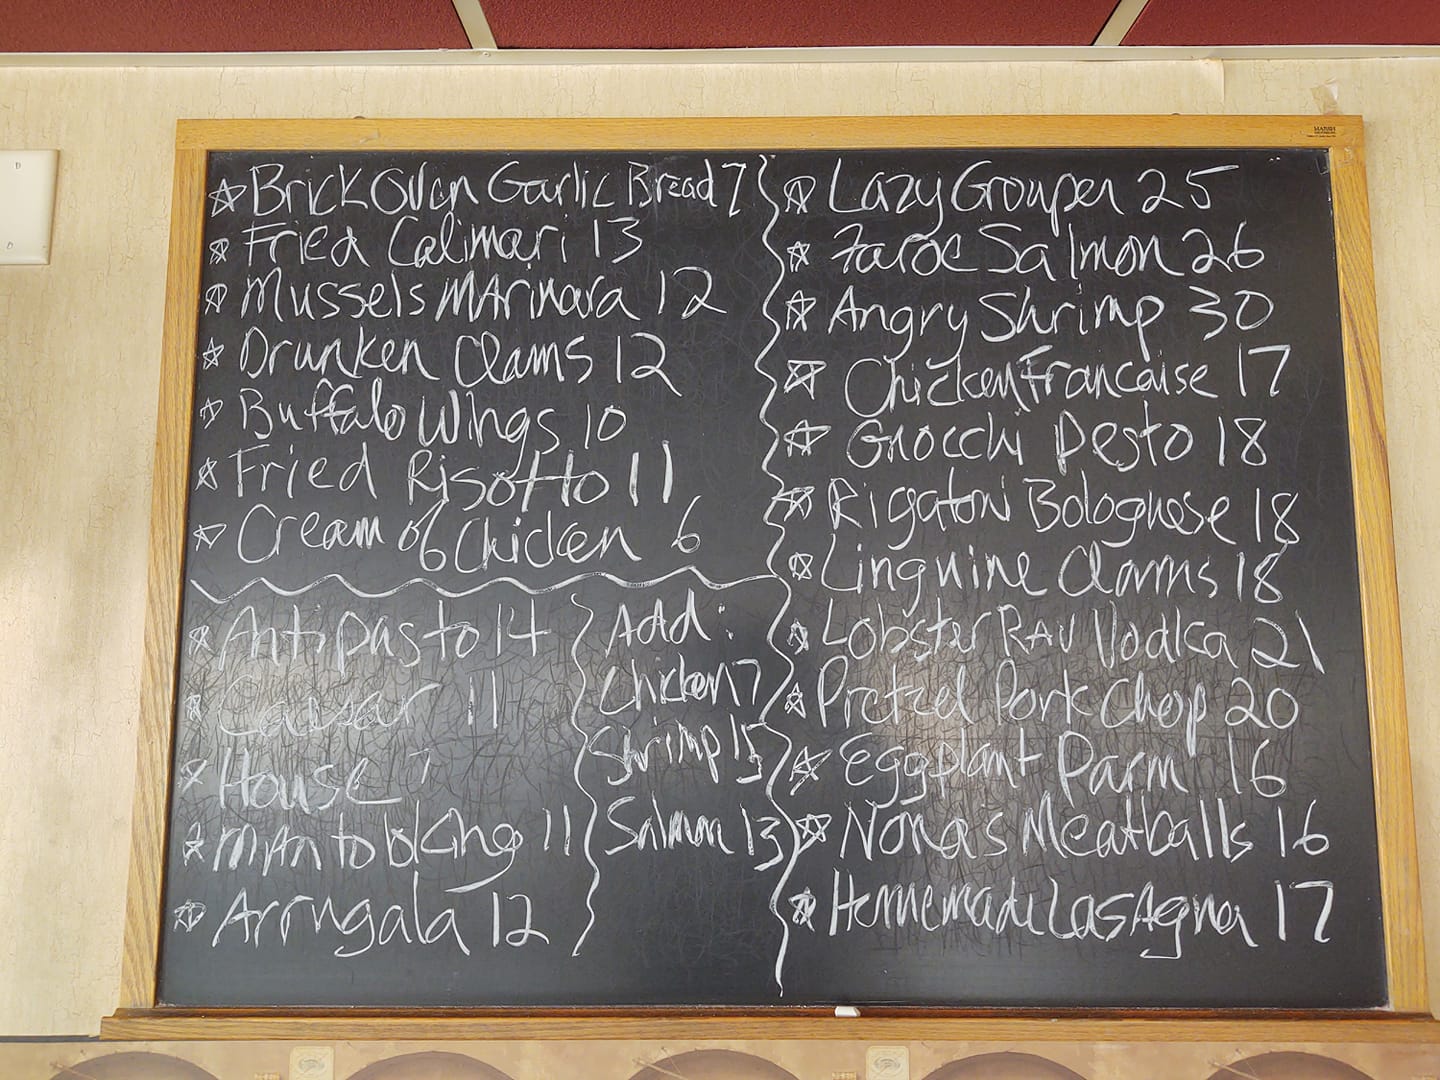 Brick Oven Garlic Bread 7
Fried Calimari 13
Mussels MArinara 12
Drunken Clams 12
Buffalo Wings 10
Fried Risotto 11
Cream of Chicken 6
Antipasto 14
Caesar 11
House 7
MAn to bking 11
Arrugala 12
Add:
Chicken 7
Shrimp 15
Salmon 13
Lazy Grouper 25
Faroe Salmon 26
Angry Shrimp 30
Chicken Francaise 17
Gnocchi Pesto 18
Rigatoni Bolognese 18
Linguine Clams 18
Lobster RAV Vodka 21
Pretzel Pork Chop 20
Eggplant Parm 16
Nonas Meatballs 16
Homemade LasAgna 17